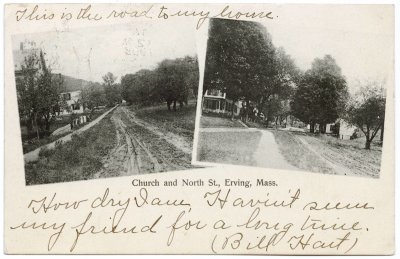 This is the road to my house.
Church and North St., Erving, Mass.
How dry I am, Havin't seen
my friend for a long time.
(Bill Hart)